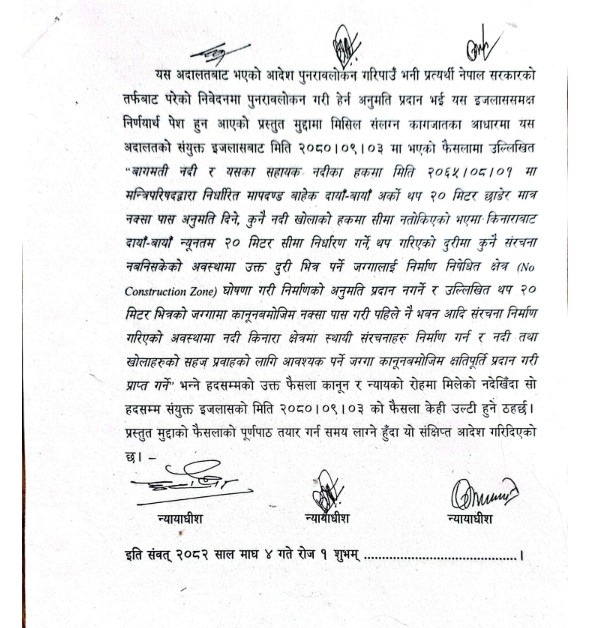 यस अदालतबाट भएको आदेश पुनरावलोकन गरिपाउँ भनी प्रत्यर्थी नेपाल सरकारको
तर्फबाट परेको निवेदनमा पुनरावलोकन गरी हेर्न अनुमति प्रदान भई यस इजलाससमक्ष
निर्णयार्थ पेश हुन आएको प्रस्तुत मुद्दामा मिसिल संलग्न कागजातका आधारमा यस
अदालतको संयुक्त इजलासबाट मिति २०८०।०९।०३ मा भएको फैसलामा उल्लिखित
"बागमती नदी र यसका सहायक नदीका हकमा मिति २०६५।०८।०१ मा
मन्त्रिपरिषद्द्वारा निर्धारित मापदण्ड बाहेक दायाँ-बायाँ अर्को थप २० मिटर छाडेर मात्र
नक्सा पास अनुमति दिने, कुनै नदी खोलाको हकमा सीमा नतोकिएको भएमा किनाराबाट
दायाँ-बायाँ न्यूनतम २० मिटर सीमा निर्धारण गर्ने, थप गरिएको दुरीमा कुनै संरचना
नबनिसकेको अवस्थामा उक्त दुरी भित्र पर्ने जग्गालाई निर्माण निषेधित क्षेत्र (No
Construction Zone) घोषणा गरी निर्माणको अनुमति प्रदान नगर्ने र उल्लिखित थप २०
मिटर भित्रको जग्गामा कानूनबमोजिम नक्सा पास गरी पहिले नै भवन आदि संरचना निर्माण
गरिएको अवस्थामा नदी किनारा क्षेत्रमा स्थायी संरचनाहरु निर्माण गर्न र नदी तथा
खोलाहरुको सहज प्रवाहको लागि आवश्यक पर्ने जग्गा कानूनबमोजिम क्षतिपूर्ति प्रदान गरी
प्राप्त गर्ने" भन्ने हदसम्मको उक्त फैसला कानून र न्यायको रोहमा मिलेको नदेखिँदा सो
हदसम्म संयुक्त इजलासको मिति २०८०।०९।०३ को फैसला केही उल्टी हुने ठहर्छ।
प्रस्तुत मुद्दाको फैसलाको पूर्णपाठ तयार गर्न समय लाग्ने हुँदा यो संक्षिप्त आदेश गरिदिएको
छ। –
न्यायाधीश न्यायाधीश न्यायाधीश
इति संवत् २०८२ साल माघ ४ गते रोज १ शुभम् ..........................................।